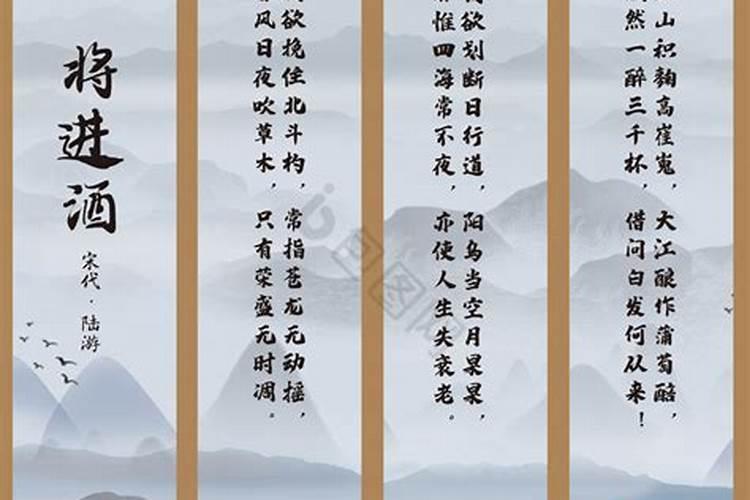 将进酒
宋代·陆游
欲挽住北斗杓，常指苍龙无动摇，
风日夜吹草木，只有荣盛无时凋。
欲划断日行道，阳乌当空月杲杲，
惟四海常不夜，亦使人生失衰老。
山积麹高崔嵬，大江酿作蒲萄醅，
然一醉三千杯，借问白发何从来！
包图网